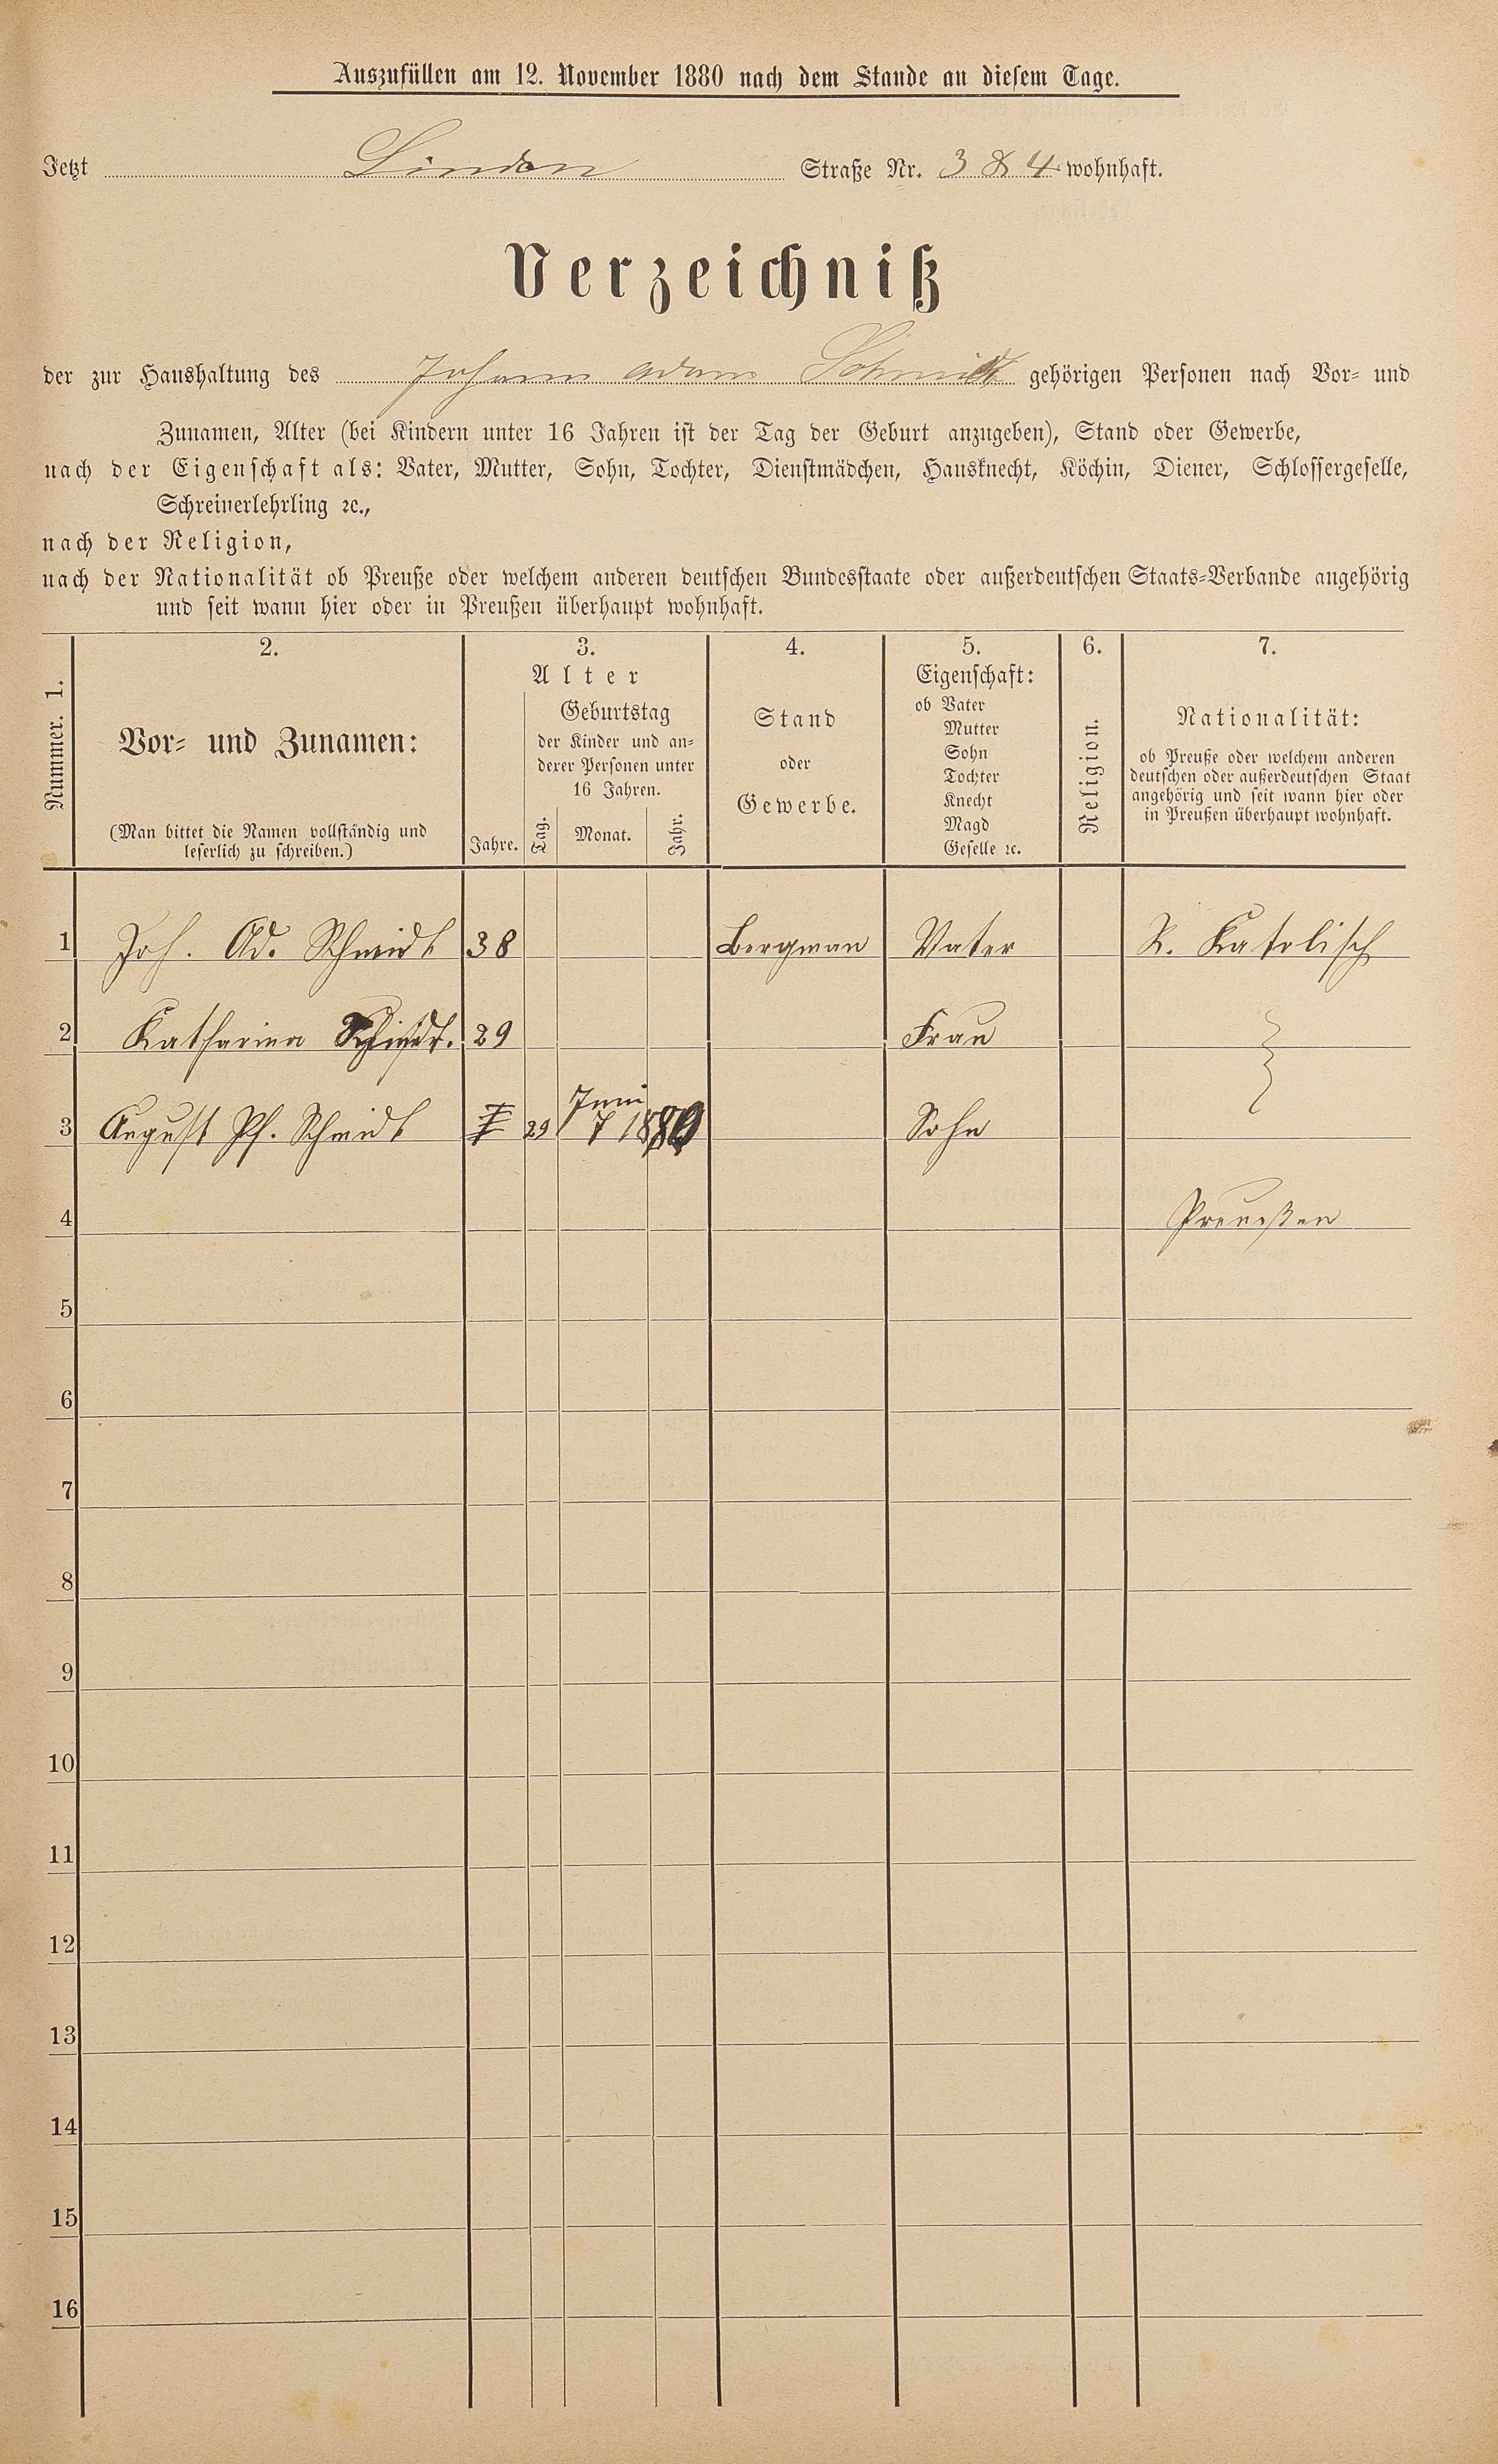 Auszufüllen am 12. November 1880 nach dem Stande an diesem Tage.
Jetzt Linden Straße Nr. 3 & 4 wohnhaft.
Verzeichniß
der zur Haushaltung des Johann Adam Schmidt gehörigen Personen nach Vor- und
Zunamen, Alter (bei Kindern unter 16 Jahren ist der Tag der Geburt anzugeben), Stand oder Gewerbe,
nach der Eigenschaft als: Vater, Mutter, Sohn, Tochter, Dienstmädchen, Hausknecht, Köchin, Diener, Schlossergeselle,
Schreinerlehrling ꝛc.,
nach der Religion,
nach der Nationalität ob Preuße oder welchem anderen deutschen Bundesstaate oder außerdeutschen Staats-Verbande angehörig
und seit wann hier oder in Preußen überhaupt wohnhaft.
Nummer. 1.
2.
Vor- und Zunamen:
(Man bittet die Namen vollständig und
leserlich zu schreiben.)
3.
Alter
Jahre.
Geburtstag
der Kinder und an-
derer Personen unter
16 Jahren.
Tag. Monat. Jahr.
4.
Stand
oder
Gewerbe.
5.
Eigenschaft:
ob Vater
Mutter
Sohn
Tochter
Knecht
Magd
Geselle ꝛc.
6.
Religion.
7.
Nationalität:
ob Preuße oder welchem anderen
deutschen oder außerdeutschen Staat
angehörig und seit wann hier oder
in Preußen überhaupt wohnhaft.
1 Joh. Ad. Schmidt 38 Bergman Vater R. Katolisch
2 Katharina Schmidt. 29 Frau
3 August Pf. Schmidt 29 Juni 7 1880 Sohn
4 Preußen
5
6
7
8
9
10
11
12
13
14
15
16